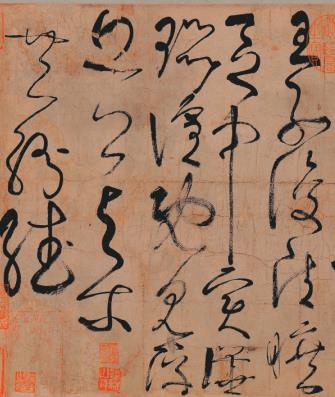 王子復清曠
區中實譁
嚻諠既見浮
丘公與爾
共紛繙